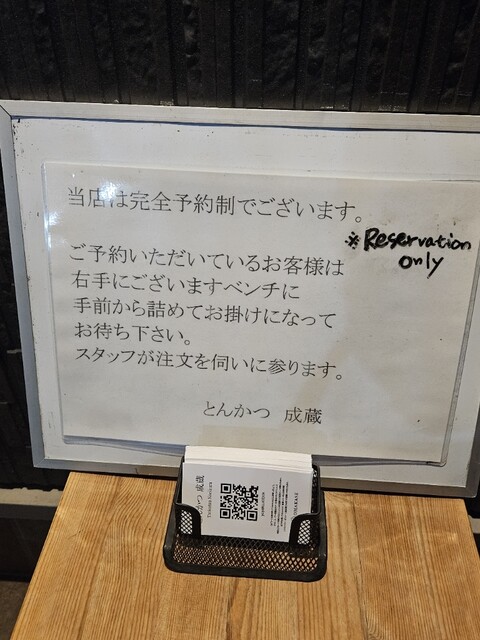 当店は完全予約制でございます。
※Reservation
only
ご予約いただいているお客様は
右手にございますベンチに
手前から詰めてお掛けになって
お待ち下さい。
スタッフが注文を伺いに参ります。
とんかつ 成蔵
かつ 成蔵